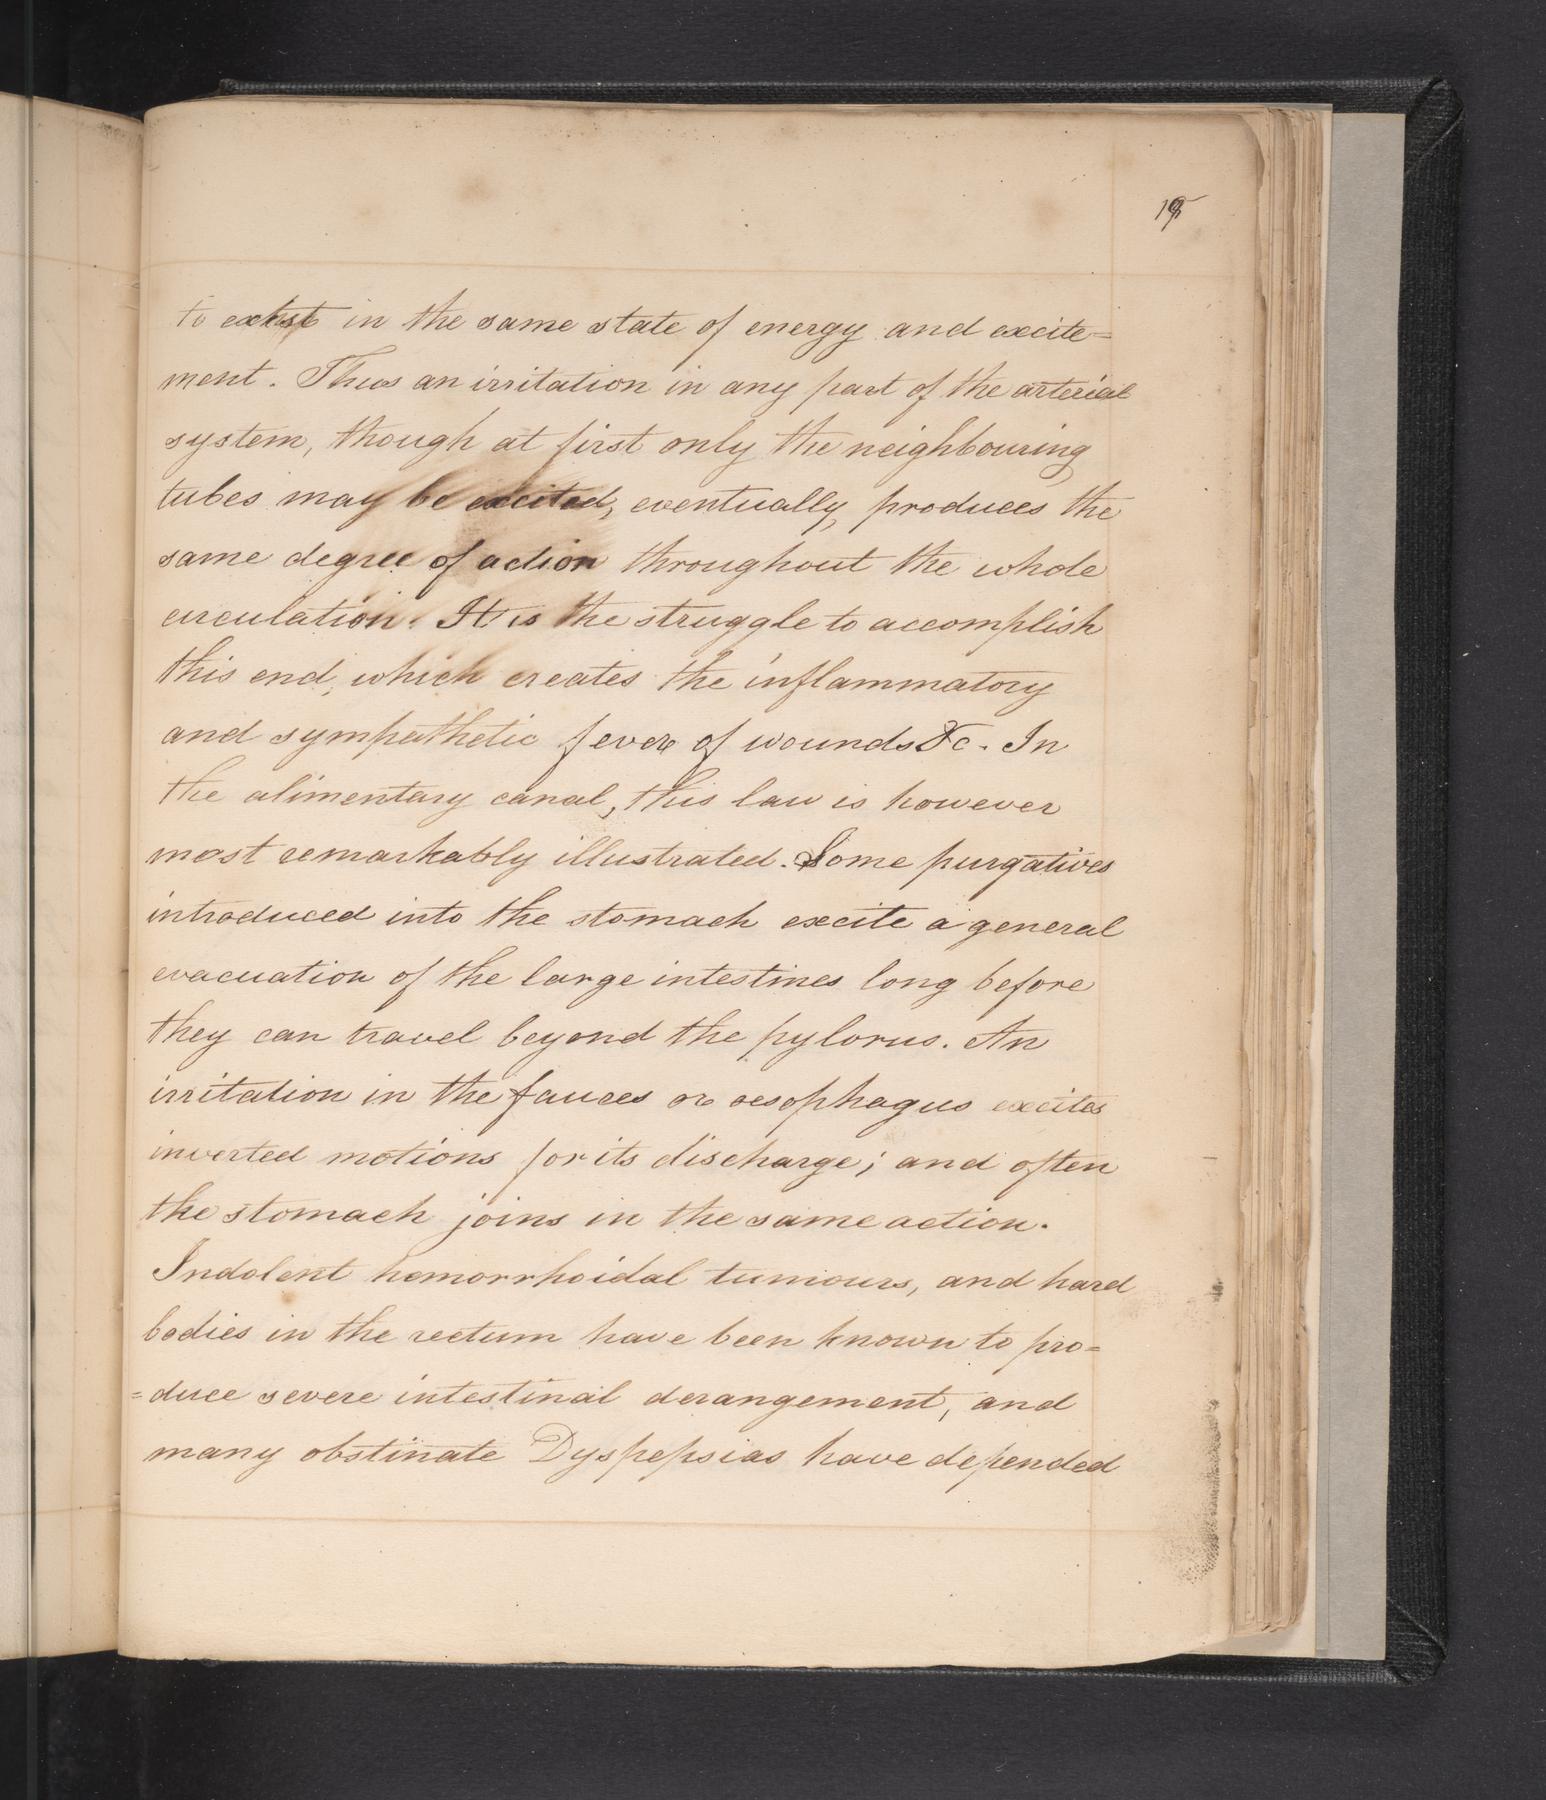 to exist in the same state of energy and excite=
ment. Thus an irritation in any part of the arterial
system, though at first only the neighbouring
tubes may be excited, eventually, produces the
same degree of action throughout the whole
circulation. It is the struggle to accomplish
this end, which creates the inflammatory
and sympathetic fever of wounds &c. In
the alimentary canal, this law is however
most remarkably illustrated. Some purgatives
introduced into the stomach excite a general
evacuation of the large intestines long before
they can travel beyond the pylorus. An
irritation in the fauces or oesophagus excites
inverted motions for its discharge; and often
the stomach joins in the same action.
Indolent hemorrhoidal tumours, and hard
bodies in the rectum have been known to pro=
=duce severe intestinal derangement, and
many obstinate Dyspepsias have depended